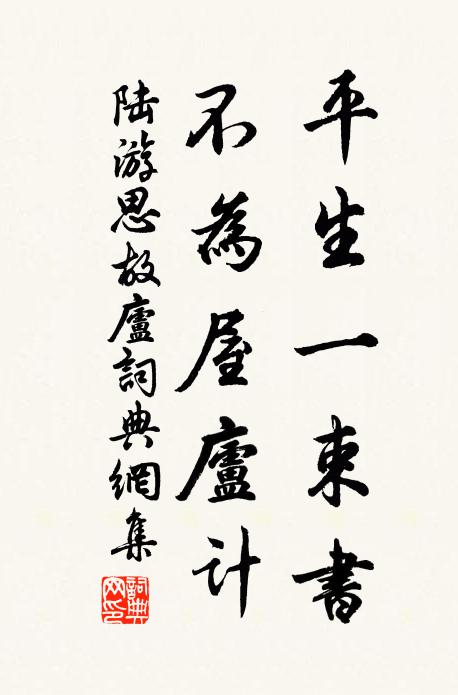 平生一束書
不為屋廬計
陸游思故廬詞典網集
詞典網印